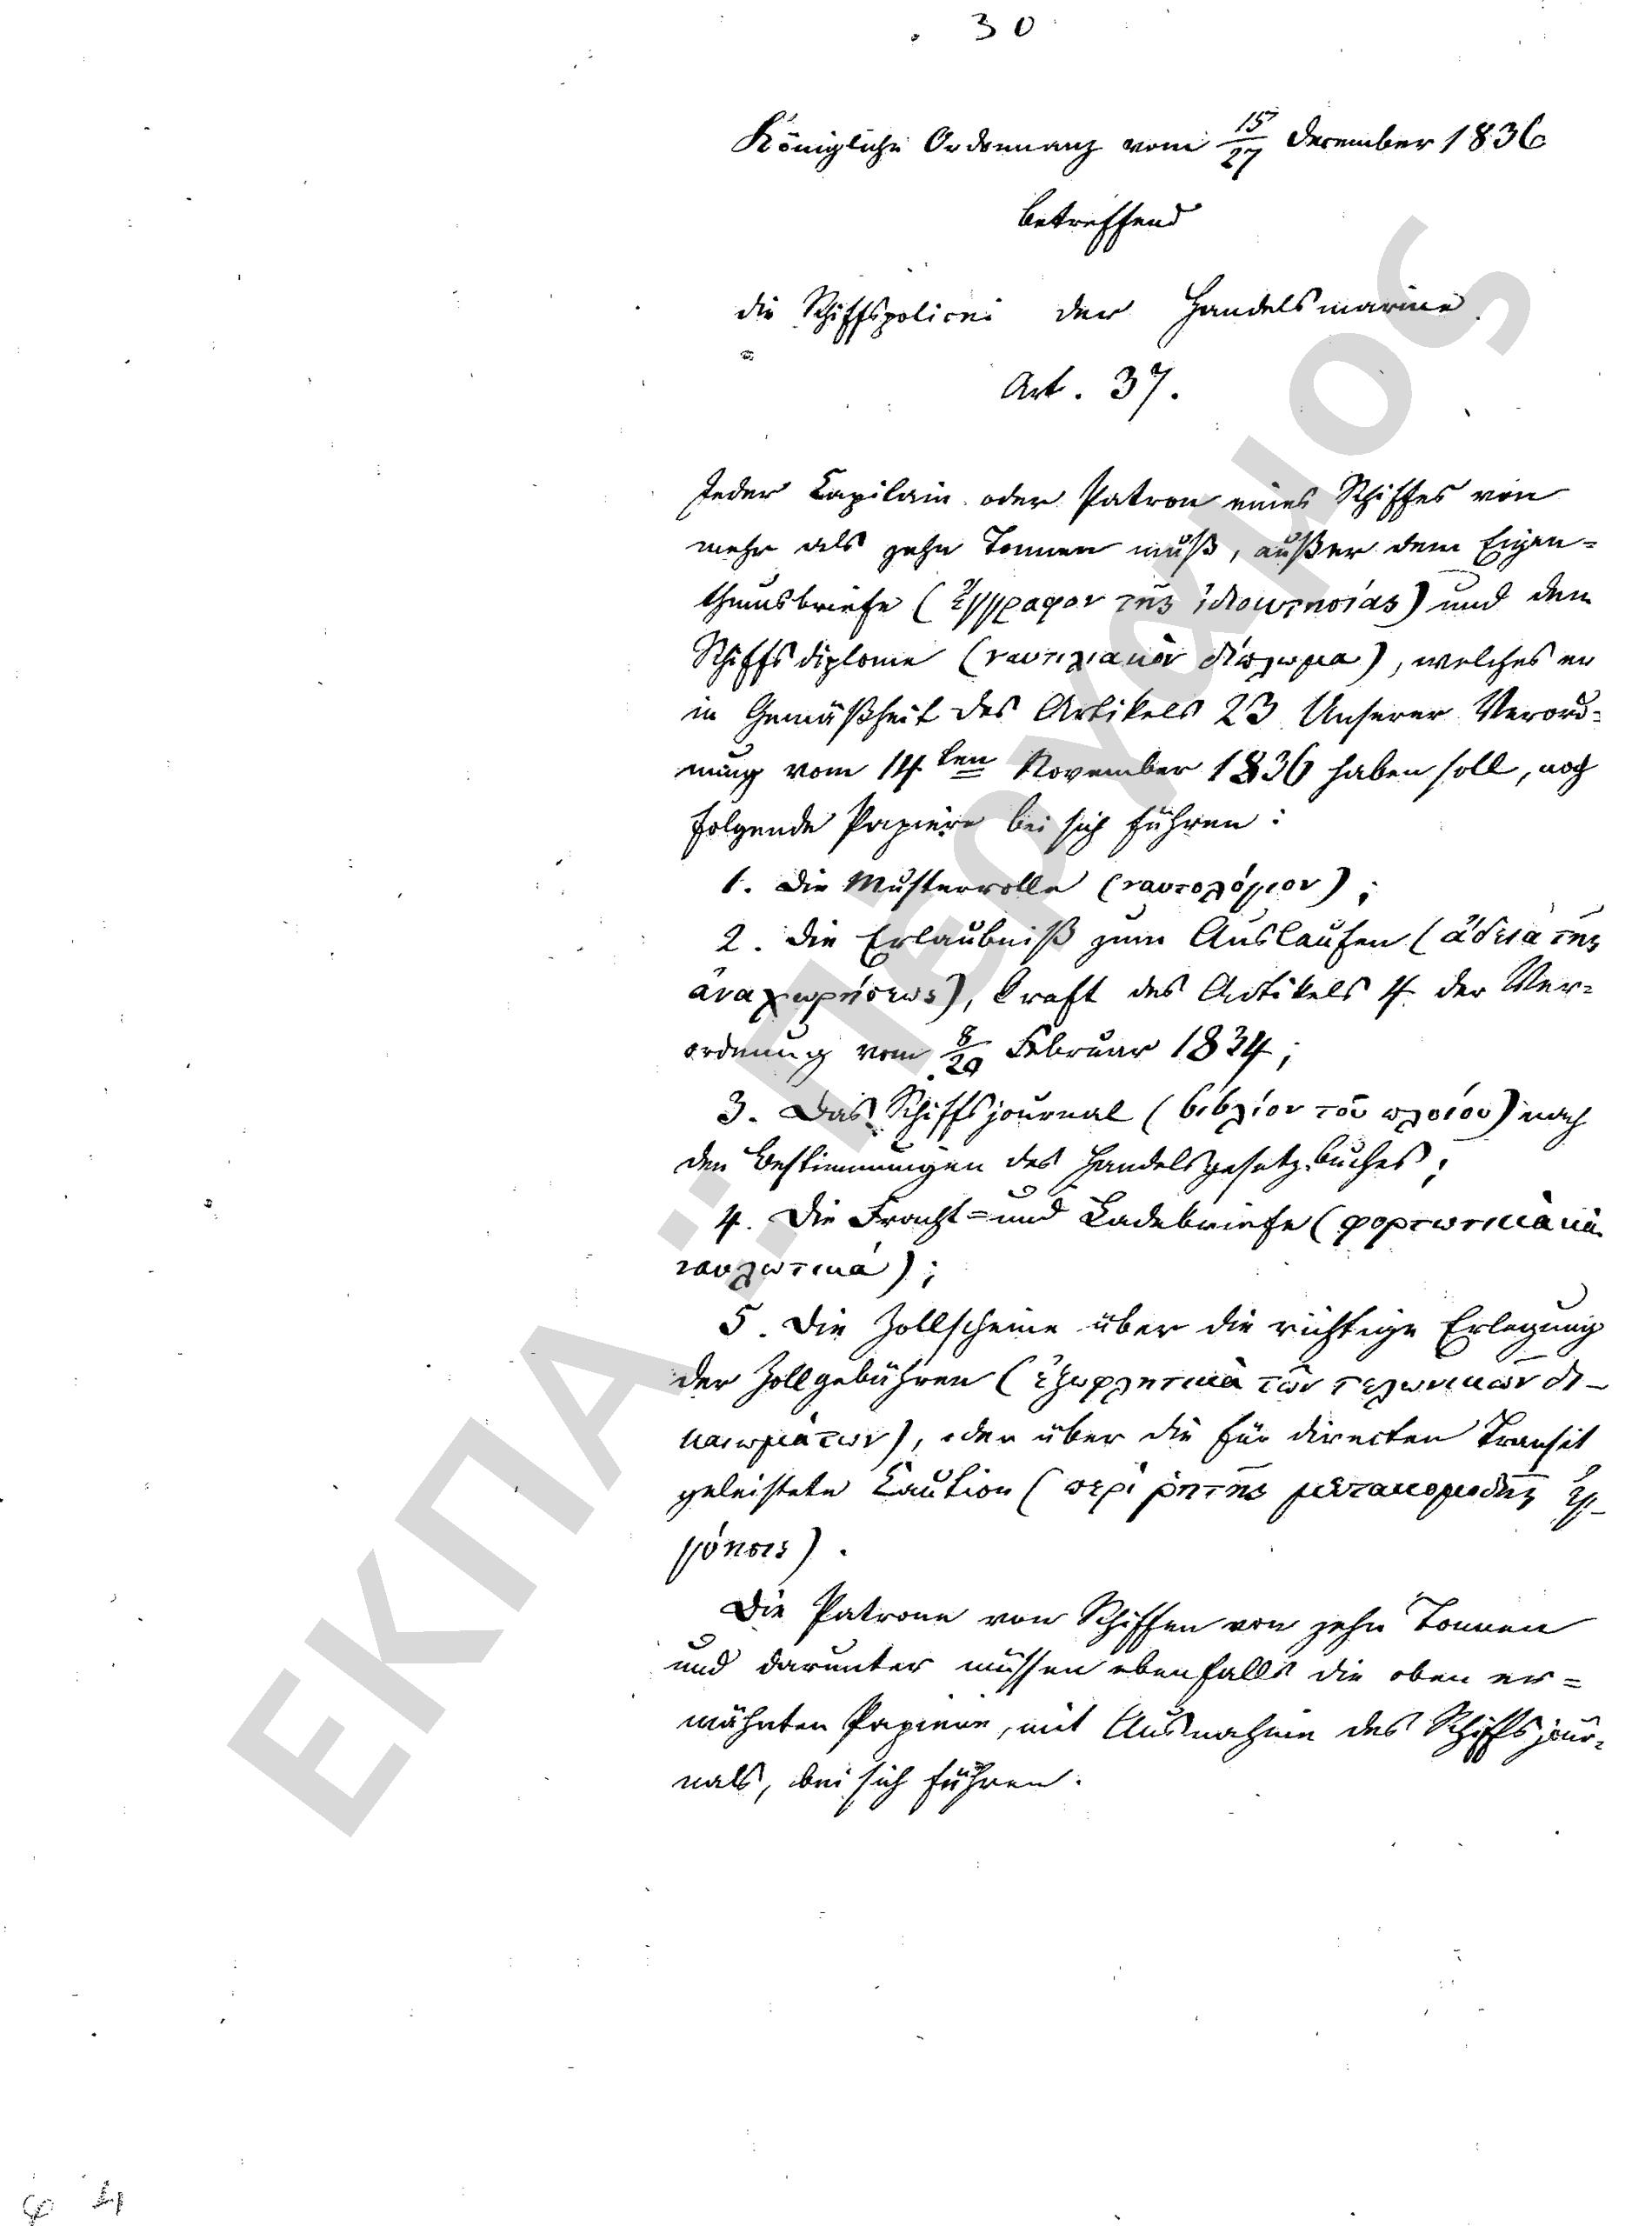 30
Königliche Ordonnanz vom 15/27 December 1836
betreffend
die Schiffspolicei der Handelsmarine.
Art. 37.
Jeder Capitain oder Patron eines Schiffes von
mehr als zehn Tonnen muß, außer dem Eigen=
thumsbriefe (ἔγγραφον τῆς ἰδιοκτησίας) und dem
Schiffsdiplome (ναυτιλιακὸν δίπλωμα), welches er
in Gemäßheit des Artikels 23 Unserer Verord=
nung vom 14ten November 1836 haben soll, noch
folgende Papiere bei sich führen:
1. Die Musterrolle (ναυτολόγιον);
2. Die Erlaubniß zum Auslaufen (ἄδεια τῆς
ἀναχωρήσεως), kraft des Artikels 4 der Ver=
ordnung vom 8/20 Februar 1834;
3. Das Schiffsjournal (βιβλίον τοῦ πλοίου) nach
den Bestimmungen des Handelsgesetzbuches;
4. Die Fracht= und Ladebriefe (φορτωτικὰ καὶ
ναυλωτικά);
5. Die Zollscheine über die richtige Erlegung
der Zollgebühren (ἐξωφλητικὰ τῶν τελωνικῶν δι-
καιωμάτων), oder über die für directen Transit
geleistete Caution (περὶ ῥητῆς μετακομιδῆς ἐγ-
γύησις).
Die Patrone von Schiffen von zehn Tonnen
und darunter müssen ebenfalls die oben er=
wähnten Papiere, mit Ausnahme des Schiffsjour=
nals, bei sich führen.
ΕΚΠΑ :: ΠΕΡΓΑΜΟΣ